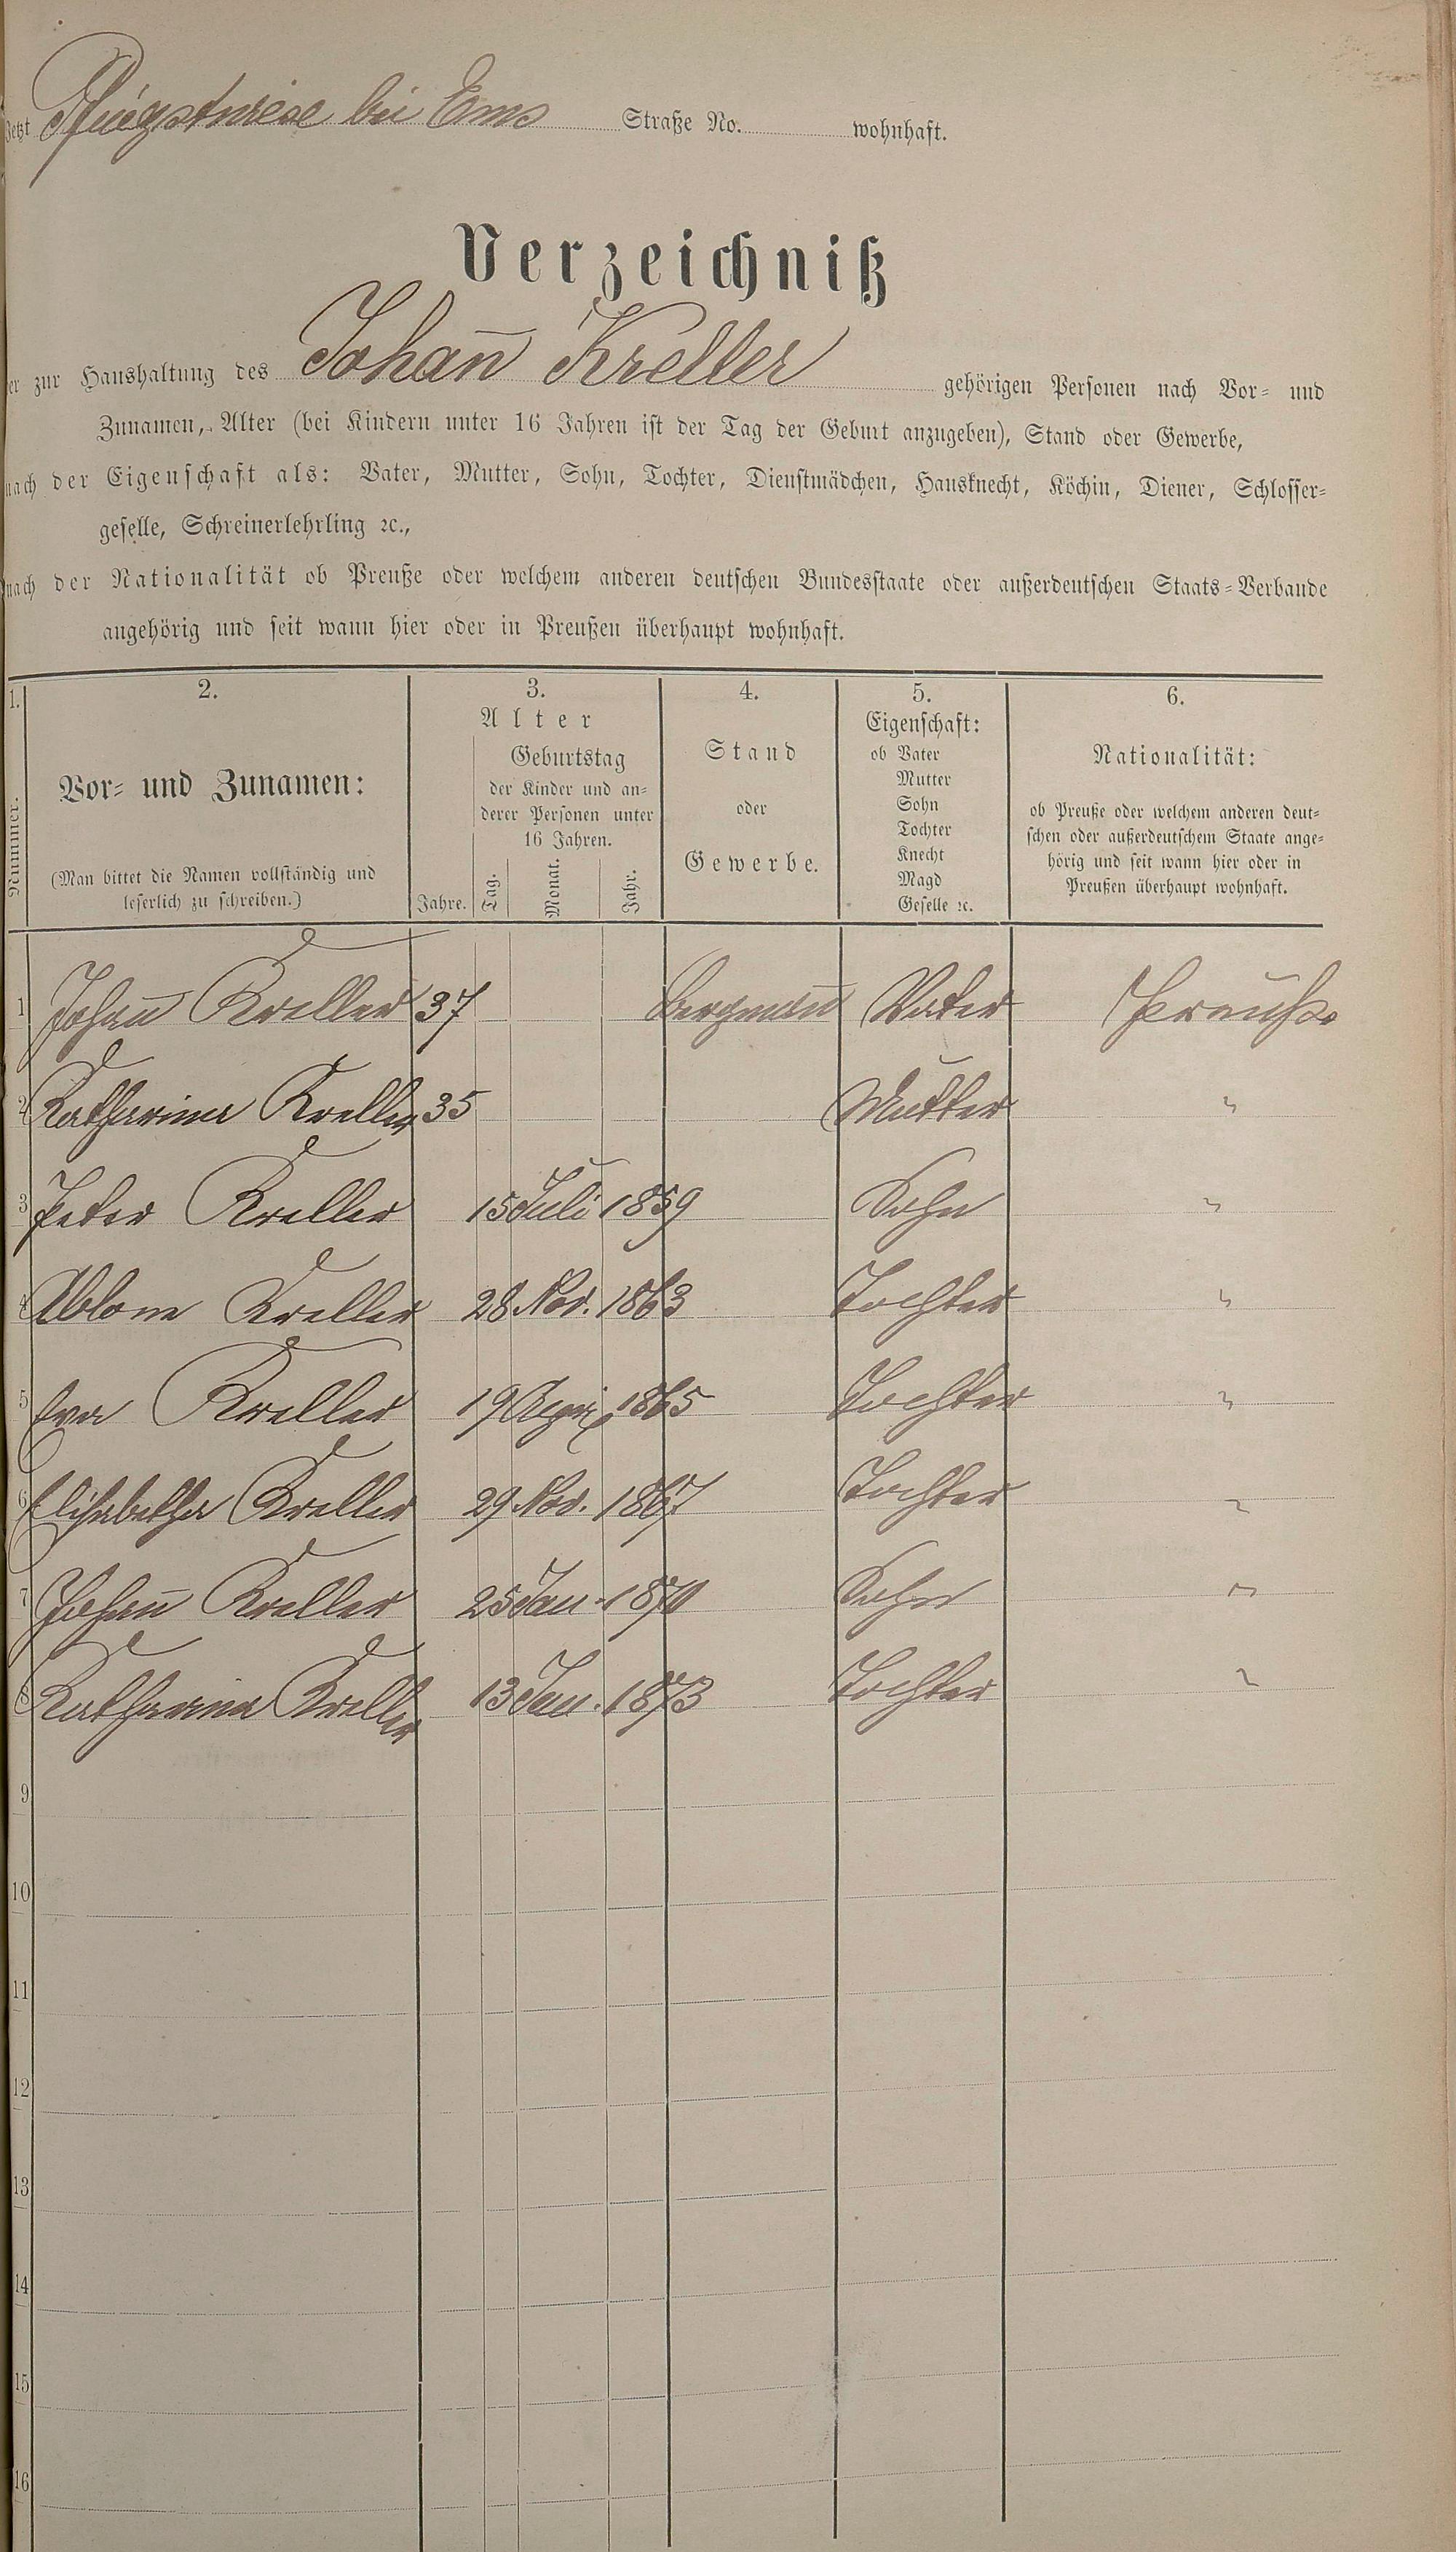 Jetzt Pfingstwiese bei Ems Straße No. wohnhaft.
Verzeichniß
er zur Haushaltung des Johan̄ Kreller gehörigen Personen nach Vor- und
Zunamen, Alter (bei Kindern unter 16 Jahren ist der Tag der Geburt anzugeben), Stand oder Gewerbe,
nach der Eigenschaft als: Vater, Mutter, Sohn, Tochter, Dienstmädchen, Hausknecht, Köchin, Diener, Schlosser-
geselle, Schreinerlehrling ꝛc.,
nach der Nationalität ob Preuße oder welchem anderen deutschen Bundesstaate oder außerdeutschen Staats-Verbande
angehörig und seit wann hier oder in Preußen überhaupt wohnhaft.
1. 2. 3. 4. 5. 6.
Nummer.
Vor- und Zunamen:
(Man bittet die Namen vollständig und
leserlich zu schreiben.)
Alter
Jahre.
Geburtstag
der Kinder und an-
derer Personen unter
16 Jahren.
Tag. Monat. Jahr.
Stand
oder
Gewerbe.
Eigenschaft:
ob Vater
Mutter
Sohn
Tochter
Knecht
Magd
Geselle ꝛc.
Nationalität:
ob Preuße oder welchem anderen deut-
schen oder außerdeutschem Staate ange-
hörig und seit wann hier oder in
Preußen überhaupt wohnhaft.
1 Johan̄ Kreller 37 Bergman̄ Vater Preuße
2 Katharina Kreller 35 Mutter "
3 Peter Kreller 15 Juli 1859 Sohn "
4 Kreller 28 Nov. 1863 Tochter "
5 Eva Kreller 19 April 1865 Tochter "
6 Elisabetha Kreller 29 Nov. 1867 Tochter "
7 Johan̄ Kreller 25 Jan. 1870 Sohn "
8 Katharina Kreller 13 Jan. 1873 Tochter "
9
10
11
12
13
14
15
16